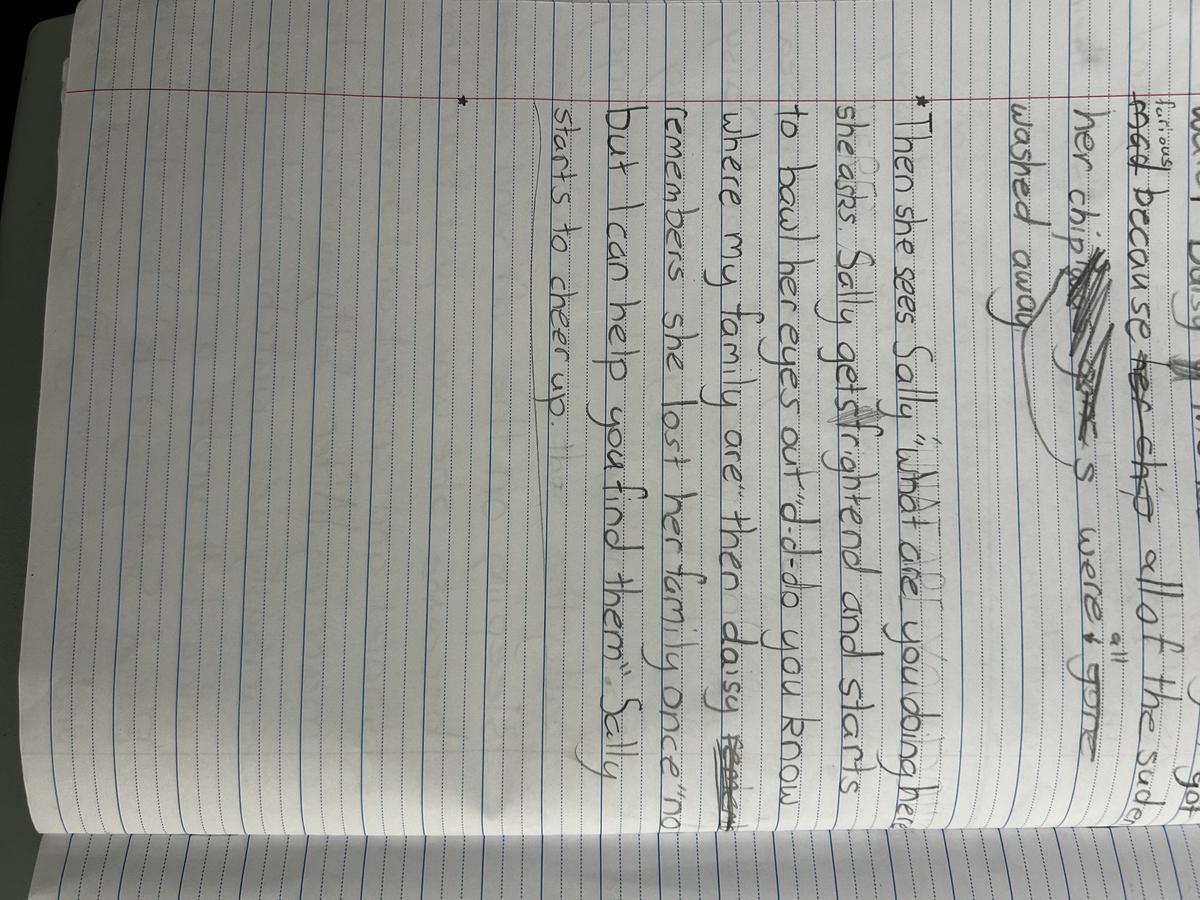 furious
mad because her chip all of the suden
her chip s were all gone
washed away
★Then she sees Sally "what are you doing here
she asks. Sally gets frightend and starts
to bawl her eyes out "d-d-do you know
where my family are" then daisy
remembers she lost her family once "no
but I can help you find them". Sally
starts to cheer up.
★